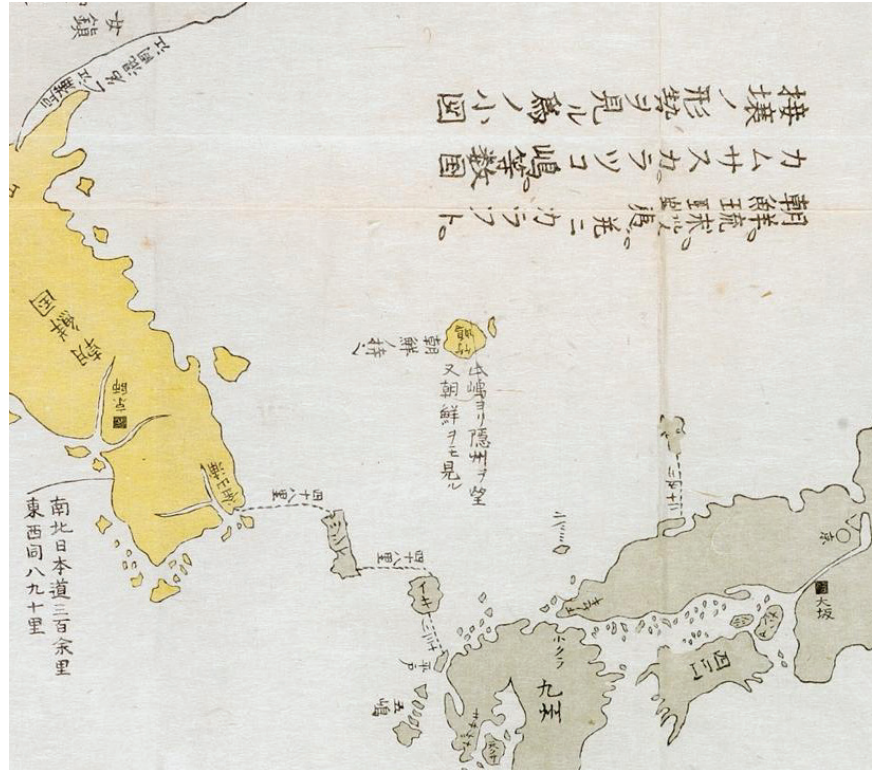 朝鮮。琉球。蝦夷。并ニカラフト。
カムサスカ。ラッコ嶋等数国
接壌ノ形勢ヲ見ル為ノ小図
朝鮮国
朝鮮ノ持之
此嶋ヨリ隠州ヲ望
又朝鮮ヲモ見ル
四十八里
四十八里
イキ
平戸
五嶋
九州
四国
京
大坂
南北日本道三百余里
東西同八九十里